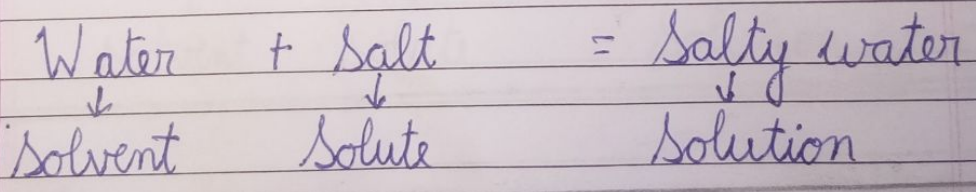 Water + Salt = Salty water
↓ ↓ ↓
Solvent Solute Solution